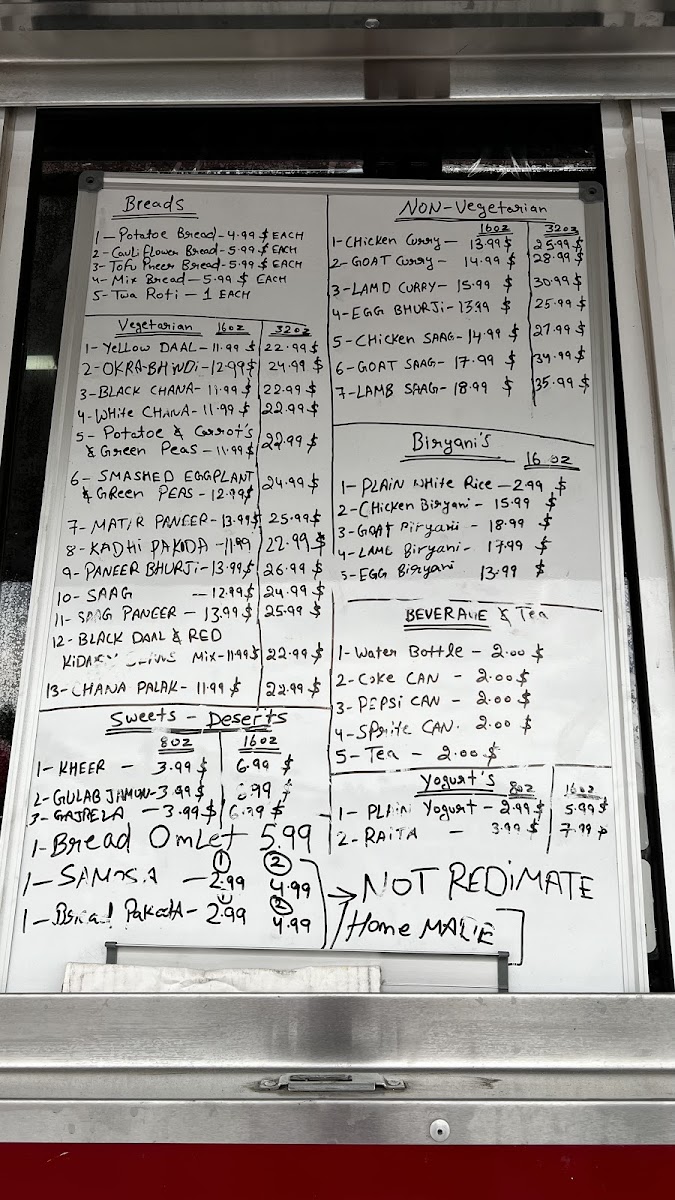 Breads
1- Potatoe Bread - 4.99 $ EACH
2- Cauli flower Bread - 5.99 $ EACH
3- Tofu Pneer Bread - 5.99 $ EACH
4- Mix Bread - 5.99 $ EACH
5- Twa Roti - 1 EACH
Vegetarian 16oz 32oz
1- YELLOW DAAL - 11.99 $ 22.99 $
2- OKRA-BHINDI - 12.99 $ 24.99 $
3- BLACK CHANA - 11.99 $ 22.99 $
4- WHITE CHANA - 11.99 $ 22.99 $
5- Potatoe & Carrot's
& Green Peas - 11.99 $ 22.99 $
6- SMASHED EGGPLANT
& GReen PEAS - 12.99 $ 24.99 $
7- MATAR PANEER - 13.99 $ 25.99 $
8- KADHI PAKODA - 11.99 22.99 $
9- PANEER BHURJI - 13.99 $ 26.99 $
10- SAAG -- 12.99 $ 24.99 $
11- SAAG PANEER - 13.99 $ 25.99 $
12- BLACK DAAL & RED
KIDNEY MIX - 11.99 $ 22.99 $
13- CHANA PALAK - 11.99 $ 22.99 $
Sweets - Deserts
8oz 16oz
1- KHEER - 3.99 $ 6.99 $
2- GULAB JAMUN - 3.99 $ 6.99 $
3- GAJRELA - 3.99 $ 6.99 $
1- Bread OmLet 5.99
1 2
1- SAMOSA - 2.99 4.99
1 2
1- Bread PakodA - 2.99 4.99
NOT REDIMATE
Home MADE
NON-Vegetarian
16oz 32oz
1- CHicken Curry - 13.99 $ 25.99 $
2- GOAT Curry - 14.99 $ 28.99 $
3- LAMD CURRY - 15.99 $ 30.99 $
4- EGG BHURJI - 13.99 $ 25.99 $
5- CHicken SAAG - 14.99 $ 27.99 $
6- GOAT SAAG - 17.99 $ 34.99 $
7- LAMB SAAG - 18.99 $ 35.99 $
Biryani's
16 oz
1- PLAIN WHite Rice - 2.99 $
2- CHicken Biryani - 15.99 $
3- GOAT Biryani - 18.99 $
4- LAMB Biryani - 17.99 $
5- EGG Biryani 13.99 $
BEVERAGE & Tea
1- Water Bottle - 2.00 $
2- Coke CAN - 2.00 $
3- PEPSI CAN - 2.00 $
4- SPRite CAN. 2.00 $
5- Tea - 2.00 $
Yogurt's 8oz 16oz
1- PLAIN Yogurt - 2.99 $ 5.99 $
2- RAITA - 3.99 $ 7.99 $